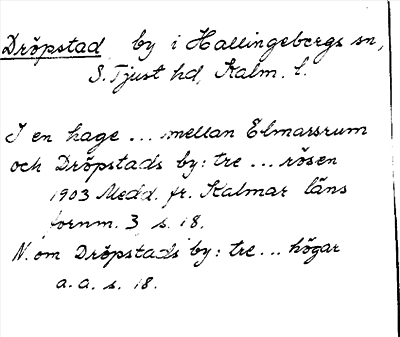 Dröpstad by i Hallingebergs sn,
S. Tjust hd, Kalm. l.
I en hage ... mellan Elmarsrum
och Dröpstads by: tre ... rösen
1903 Medd. fr. Kalmar läns
fornm. 3, s. 18.
N. om Dröpstads by: tre ... högar
a. a. s. 18.